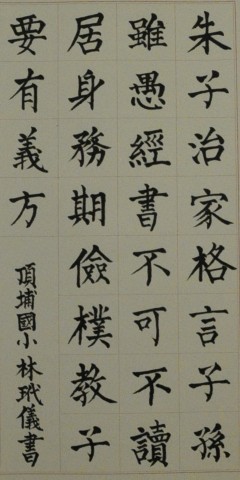 朱子治家格言子孫
雖愚經書不可不讀
居身務期儉樸教子
要有義方
頂埔國小林玳儀書